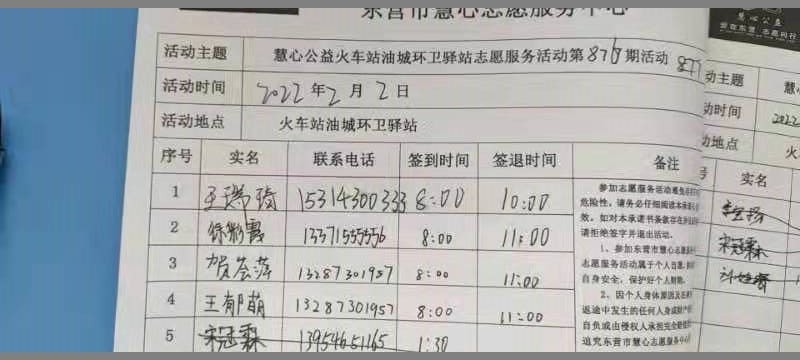 东营市慧心志愿服务中心
活动主题 慧心公益火车站油城环卫驿站志愿服务活动第876期活动
活动时间 2022年2月2日
活动地点 火车站油城环卫驿站
序号 实名 联系电话 签到时间 签退时间 备注
1 15314300333 8:00 10:00
2 13371555556 8:00 11:00
3 贺会萍 13287301957 8:00 11:00
4 王郁萌 13287301957 8:00 11:00
5 宋冠霖 13954651165 1:30
参加志愿服务活动难免存在
危险性，请务必仔细阅读本承诺书
效。如对本承诺书条款存在
请拒绝签字并退出活动。
1、参加东营市慧心志愿服务
志愿服务活动属于个人自愿，
自身安全，保护好个人财物。
2、因个人身体原因及在
返途中发生的任何人身或财产
自负或由侵权人承担完全赔偿
追究东营市慧心志愿服务中心
慧心公益
877
动主题 慧
动时间 2022
动地点 火
号 实名
宋冠霖